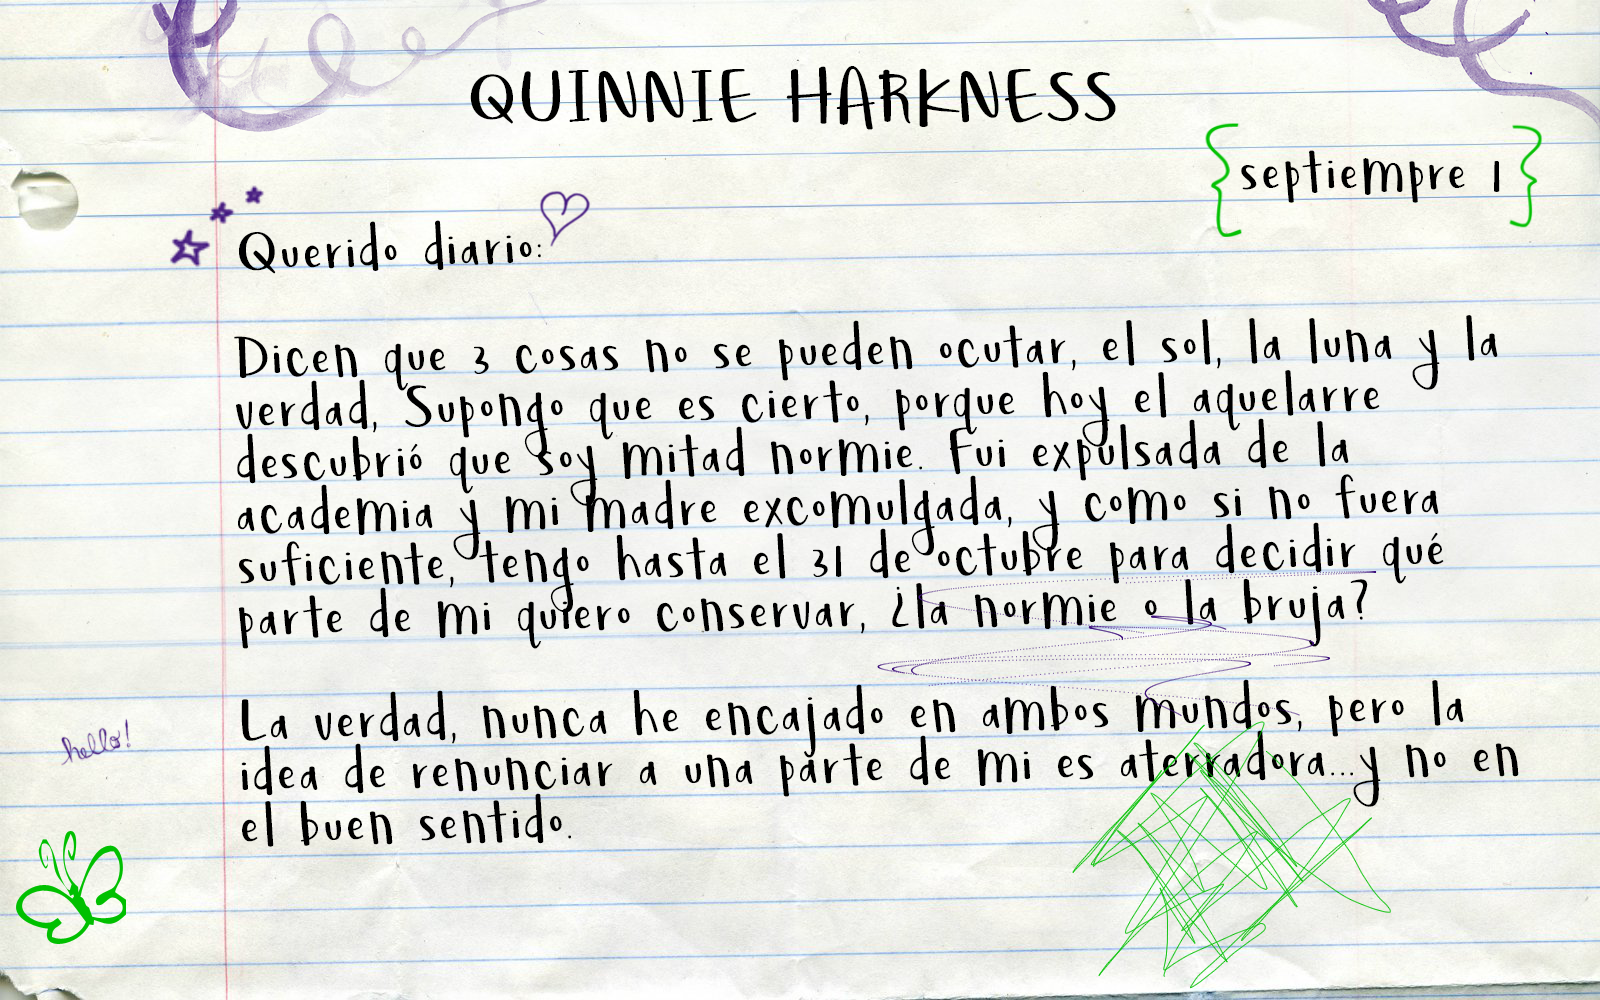 QUINNIE HARKNESS
septiempre 1
Querido diario:
Dicen que 3 cosas no se pueden ocutar, el sol, la luna y la
verdad, Supongo que es cierto, porque hoy el aquelarre
descubrió que soy mitad normie. Fui expulsada de la
academia y mi madre excomulgada, y como si no fuera
suficiente, tengo hasta el 31 de octubre para decidir qué
parte de mi quiero conservar, ¿la normie o la bruja?
La verdad, nunca he encajado en ambos mundos, pero la
idea de renunciar a una parte de mi es aterradora...y no en
el buen sentido.
hello!